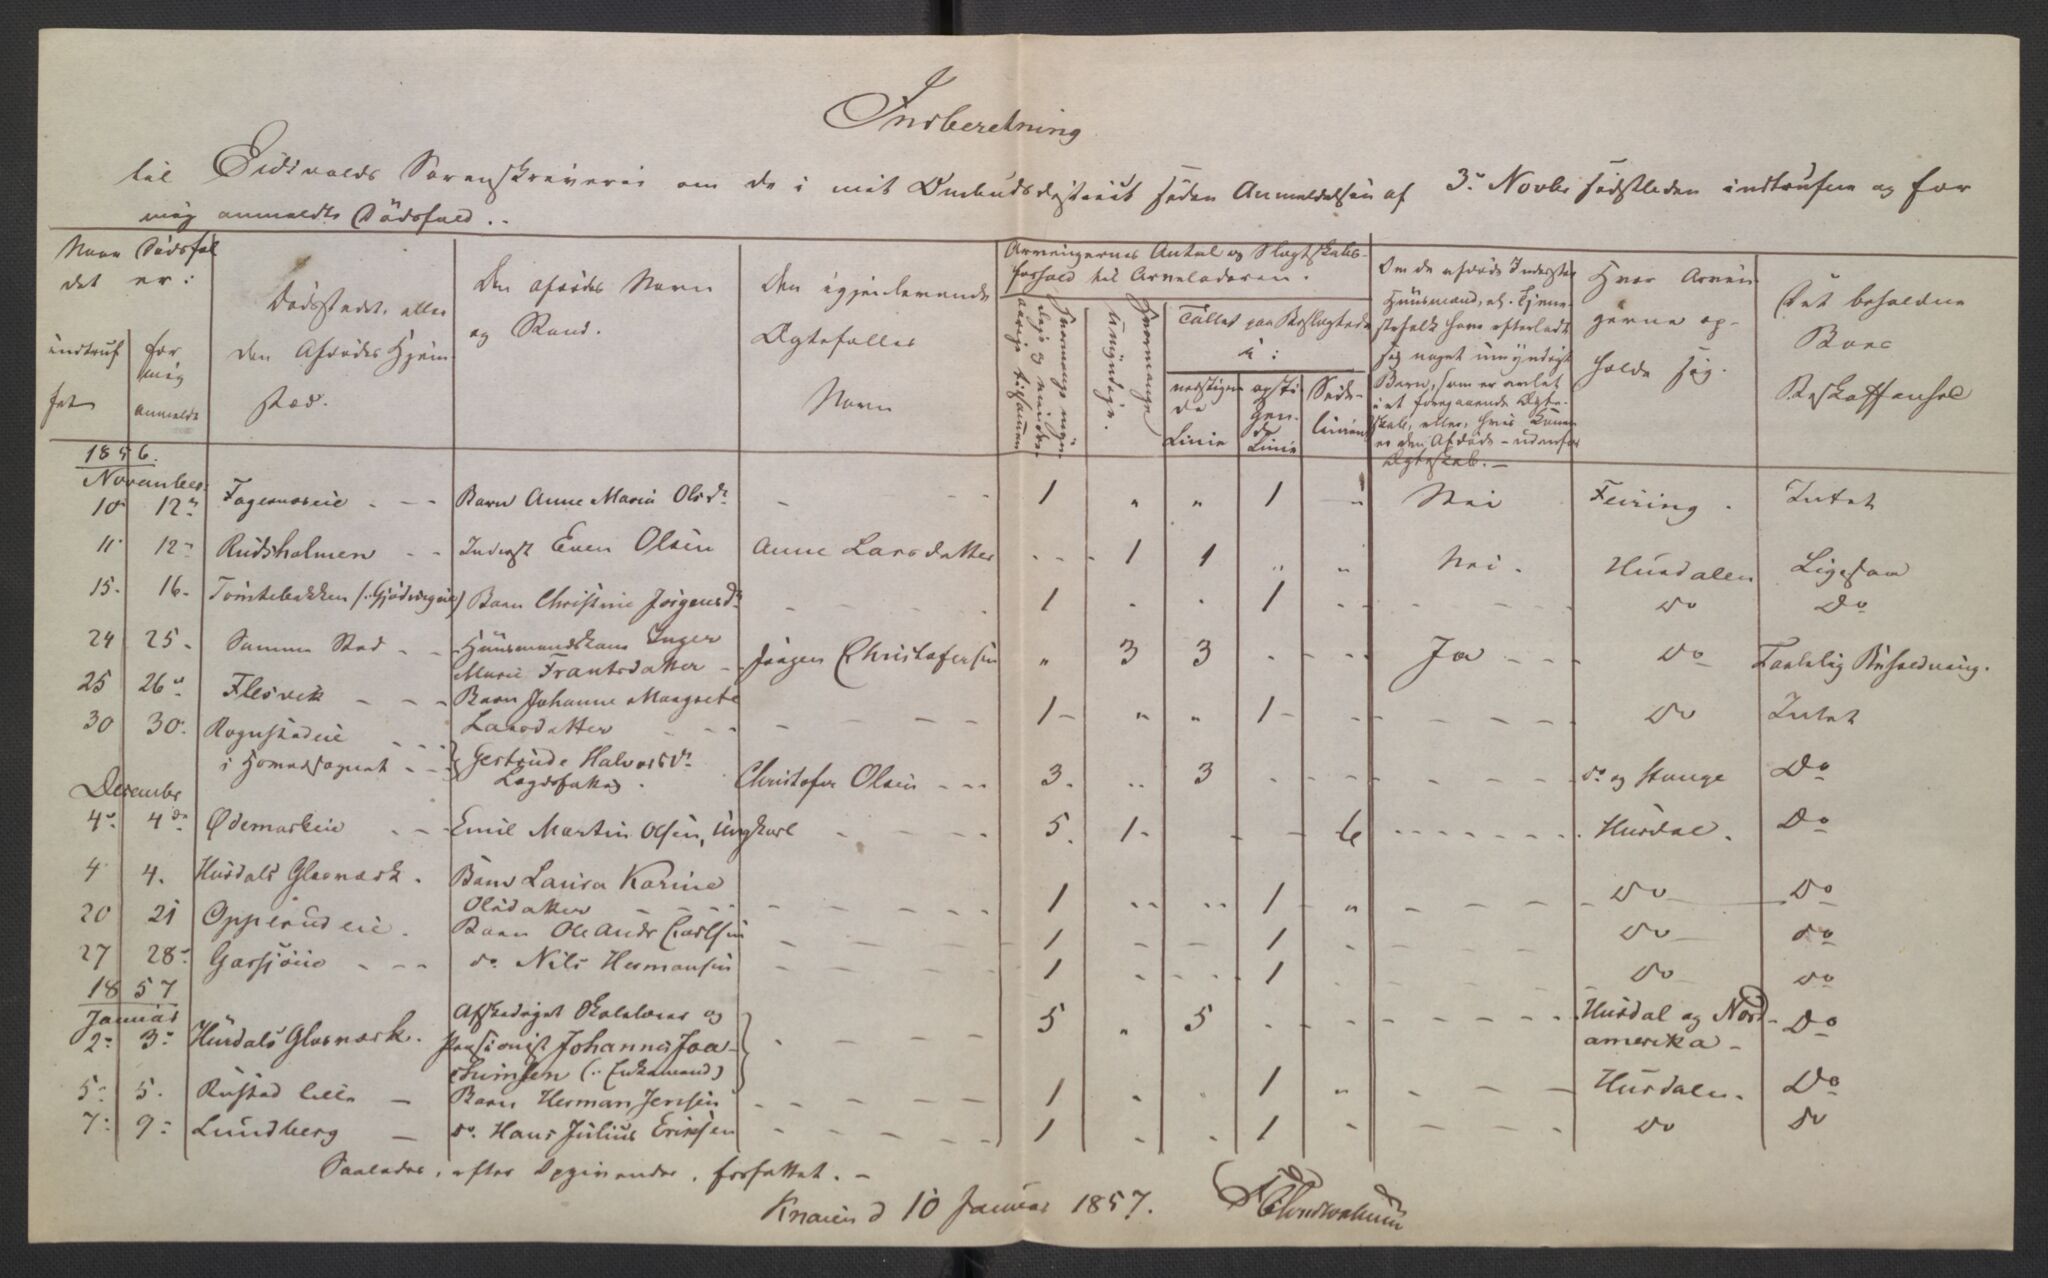 Indberetning
til Eidsvolds Sorenskriverie om de i mit Ombudsdistrict siden Anmeldelsen af 3. Novbr sidstleden indtrufne og for
mig anmeldte Dödsfald.
Naar Dödsfal
det er:
indtruf
fet
for
mig
anmeldt
Dödsstedet, eller
den Afdödes Hjem
sted.
Den afdödes Navn
og Stand.
Den igjenlevende
Ægtefælles
Navn
Arvingernes Antal og Slægtskabs-
forhold til Arveladeren.
Hvormange myn-
dige og minder-
aarige tilsammen
Hvormange
Umyndige.
Tallet paa Beslægtede
i:
nedstigen
de
Linie
opsti
gen-
de
Linie
Side-
linien
Om de afdöde Inderster
Huusmænd, el. Tjene-
stefolk have efterladt
sig noget umyndigt
Barn, som er avlet
i et foregaaende Ægte-
skab, eller, hvis Konen
er den Afdöde – udenfor
Ægteskab. –
Hvor Arvin
gerne op-
holde sig.
Det beholdne
Boes
Beskaffenhed
1856.
November
10 12 Fagernæseie - - - Barn Anne Maria Olsdr - 1 " " 1 " Nei Feiring. Intet
11 12 Rudsholmen - - Inderst Even Olsen Anne Larsdatter - - - 1 1 " " Nei. Hurdalen Ligesaa
15. 16. Tömtebakken (: Gjödingeie) Barn Christine Jörgensdr - 1 - - 1 - - do Do
24 25. Samme Sted - - Huusmandskone Inger
Marie Frantsdatter - Jörgen Christofersen " 3 3 - - - Ja - - do Taalelig Beholdning.
25 26 Flesvik - - - Barn Johanne Margrete
Larsdatter - 1 - " " 1 - - do Intet
30 30. Rognstadeie
i Hovedsognet - - Gertrude Halvorsdr
Lægdsfattig. Christofer Olsen - - - 3. " 3 - - - do og Stange Do
December
4 4de Ödemarkeie - - Emil Martin Olsen, Ungkarl - 5. 1 - - - 6 - - Hurdal. Do
4 4. Hurdals Glasværk. Barn Laura Karine
Olsdatter - 1 " " 1 " - do Do
20 21 Opperudeie. Barn Ole Andr Carlsen - 1 - - 1 - do do
27 28 Garsjöeie - - - do Nils Hermansen - 1 - - 1 - do do
1857
Januar
2 3 Hurdals Glasværk. Afskediget Skolelærer og
Pensionist Johannes Joa-
chimsen (: Enkemand) - 5 " 5 - - - Hurdal og Nord-
amerika - Do
5 5. Rustad lille - Barn Herman Jensen - 1 - - 1 " - Hurdalen. Do
7 9 Lundberg - do. Hans Julius Eriksen - 1 - - 1 - do do
Saaledes, efter Opgivender, forfattet. -
Knaien d 10 Januar 1857.